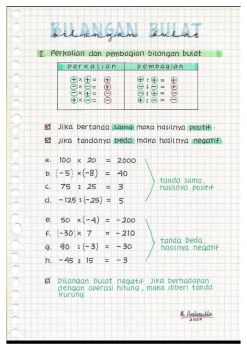 BILANGAN BULAT
bilangan bulat
I. Perkalian dan pembagian bilangan bulat
perkalian pembagian
+ × + = + + : + = +
+ × - = - + : - = -
- × + = - - : + = -
- × - = + - : - = +
Jika bertanda sama maka hasilnya positif
Jika tandanya beda maka hasilnya negatif
a. 100 × 20 = 2000
b. (-5) × (-8) = 40
c. 75 : 25 = 3
d. -125 : (-25) = 5
tanda sama,
hasilnya positif
e. 50 × (-4) = -200
f. (-30) × 7 = -210
g. 90 : (-3) = -30
h. -45 : 15 = -3
tanda beda,
hasilnya negatif
bilangan bulat negatif jika berhadapan
dengan operasi hitung, maka diberi tanda
kurung